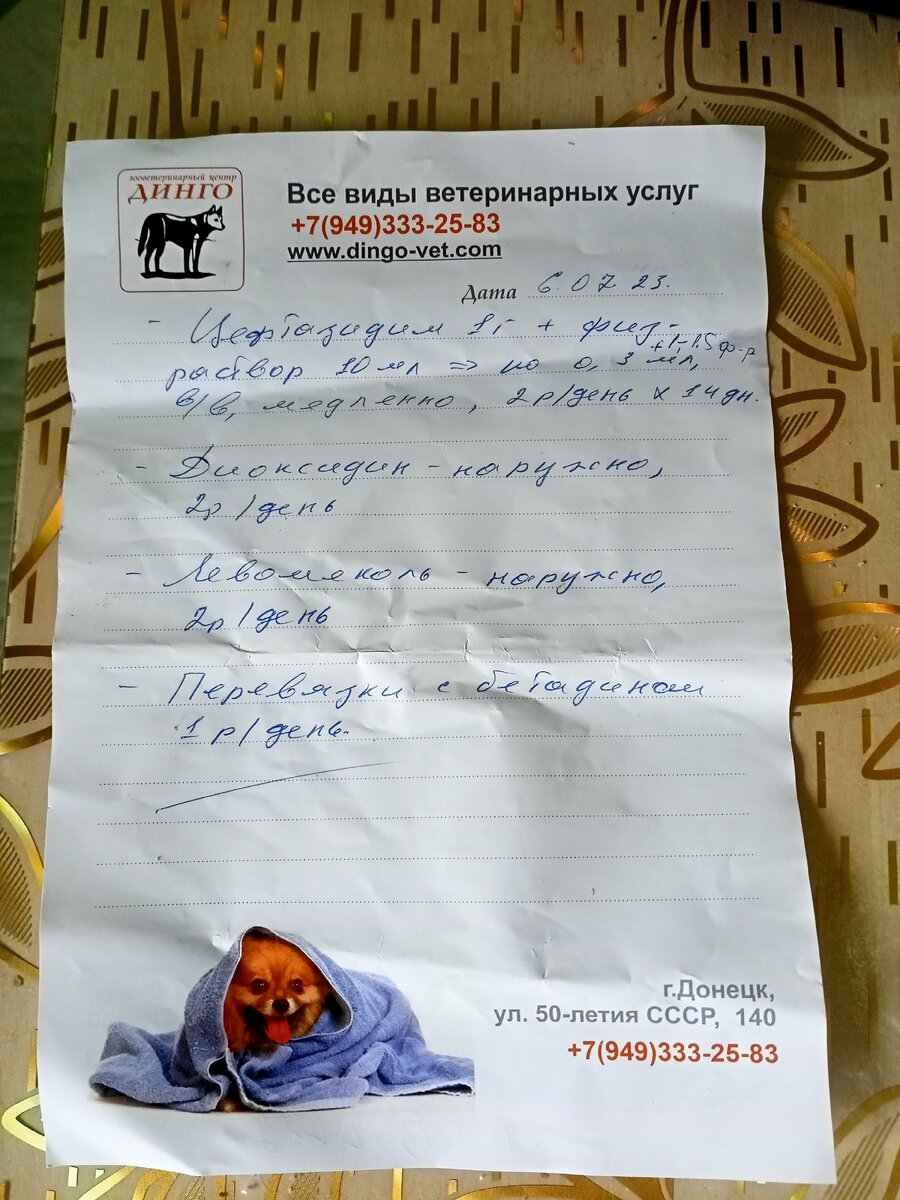 зооветеринарный центр
ДИНГО
Все виды ветеринарных услуг
+7(949)333-25-83
www.dingo-vet.com
Дата 6.07 23.
- Цефтазидим 1г + физ-
раствор 10 мл => по 0,3 мл, +1-1.5 ф-р
в/в, медленно, 2р/день х 14 дн.
- Диоксидин - наружно,
2р/день
- Левомеколь - наружно,
2р/день
- Перевязки с бетадином
1 р/день.
г.Донецк,
ул. 50-летия СССР, 140
+7(949)333-25-83